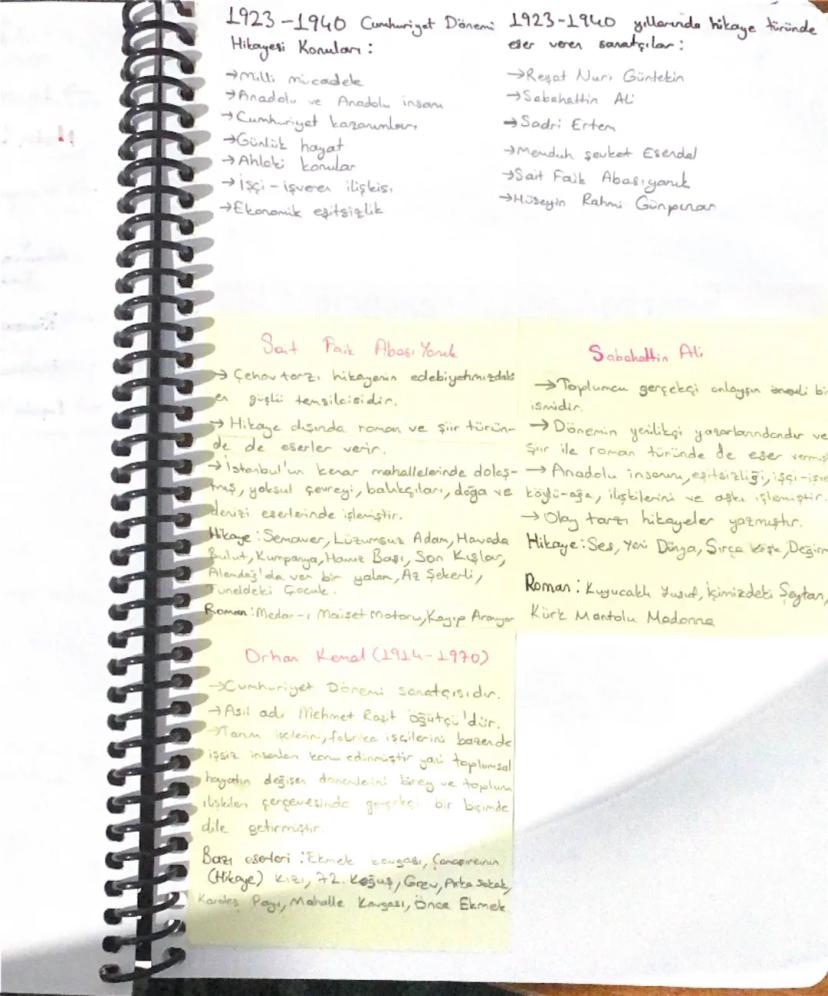 1923-1940 Cumhuriyet Dönemi
Hikayesi Konuları:
→Milli mücadele
→Anadolu ve Anadolu insanı
→Cumhuriyet kazanımları
→Günlük hayat
→Ahlaki konular
→İşçi-işveren ilişkisi
→Ekonomik eşitsizlik
1923-1940 yıllarında hikaye türünde
eser veren sanatçılar:
→Reşat Nuri Güntekin
→Sabahattin Ali
→Sadri Ertem
→Memduh Şevket Esendal
→Sait Faik Abasıyanık
→Hüseyin Rahmi Günpınar
Sait Faik Abası Yanık
→ Çehov tarzı hikayenin edebiyatımızdaki
en güçlü temsilcisidir.
→ Hikaye dışında roman ve şiir türün-
de de eserler verir.
→ İstanbul'un kenar mahallelerinde dolaş-
mış, yoksul çevreyi, balıkçıları, doğa ve
denizi eserlerinde işlemiştir.
Hikaye: Semaver, Lüzumsuz Adam, Havada
Bulut, Kumpanya, Havuz Başı, Son Kuşlar,
Alemdağ'da var bir yılan, Az Şekerli,
Tüneldeki Çocuk.
Roman: Medar-ı Maişet Motoru, Kayıp Aranıyor
Sabahattin Ali
→ Toplumcu gerçekçi anlayışın önemli bir
ismidir.
→ Dönemin yenilikçi yazarlarındandır ve
şiir ile roman türünde de eser vermiş
→ Anadolu insanını, eşitsizliği, işçi-işve
köylü-ağa, ilişkilerini ve aşkı işlemiştir.
→ Olay tarzı hikayeler yazmıştır.
Hikaye: Ses, Yeni Dünya, Sırça Köşk, Değirm
Roman: Kuyucaklı Yusuf, İçimizdeki Şeytan,
Kürk Mantolu Madonna
Orhan Kemal (1914-1970)
→Cumhuriyet Dönemi sanatçısıdır.
→Asıl adı Mehmet Raşit Öğütçü'dür.
→Tarım işçilerini, fabrika işçilerini bazende
işsiz insanları konu edinmiştir yani toplumsal
hayatın değişen dönemlerini birey ve toplum
ilişkileri çerçevesinde gerçekçi bir biçimde
dile getirmiştir.
Bazı eserleri: Ekmek kavgası, Çamaşırcının
(Hikaye) Kızı, 72. Koğuş, Grev, Arka Sokak,
Kardeş Payı, Mahalle Kavgası, Önce Ekmek